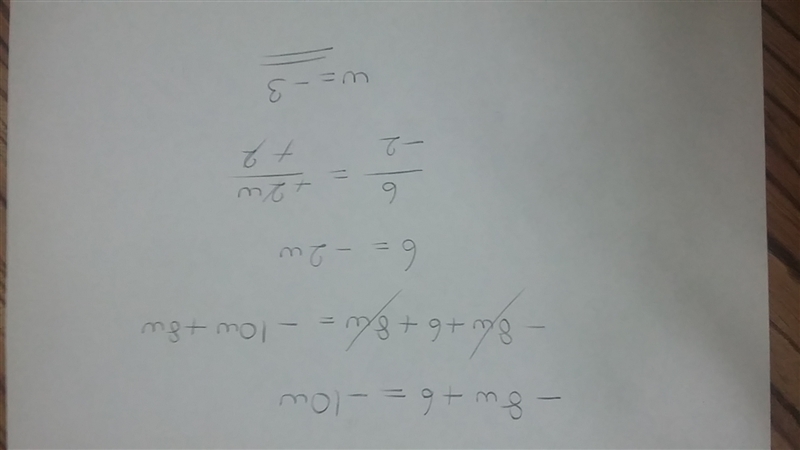 -8w + 6 = -10w
-8w + 6 + 8w = -10w + 8w
6 = -2w
6/-2 = +2w/+2
w = -3